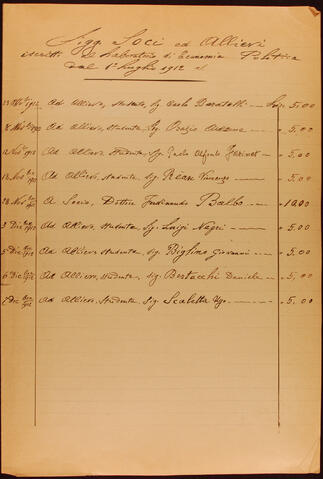 Sigg. Soci ed Allievi
iscritti al Laboratorio di Economia Politica
dal 1° Luglio 1912 al
Ad Allievo, studente, Sig. Carlo Lire 5.00
Ad Allievo, studente, Sig. Orazio " 5.00
Ad Allievo studente, Sig. " 5.00
Ad Allievo, studente, Sig. Reale Vincenzo " 5.00
A Socio, Dottor Ferdinando Balbo " 10.00
3 Dic 1912 Ad Allievo, studente, Sig. Luigi Negri " 5.00
5 Dic 1912 Ad Allievo studente, Sig. Biglino Giovanni " 5.00
6 Dic 1912 Ad Allievo, studente, Sig. Bertacchi Daniele " 5.00
7 Dic 1912 Ad Allievo, studente, Sig. Scaletta Ugo " 5.00